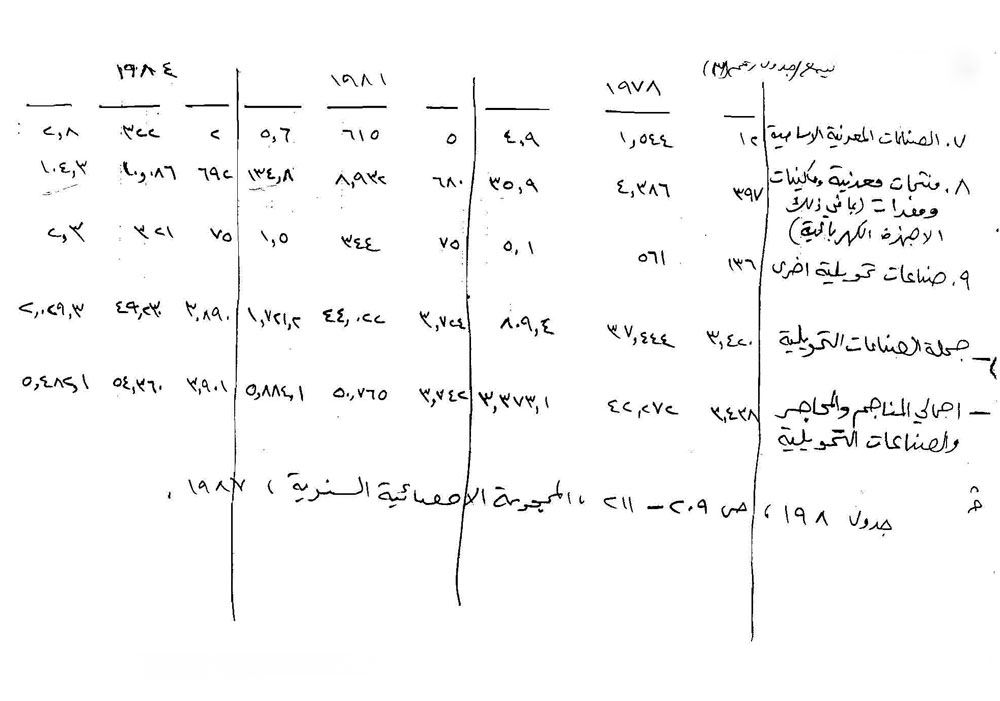 يتبع/جدول رقم (٣)
١٩٧٨ ١٩٨١ ١٩٨٤
٧. الصناعات المعدنية الاساسية ١٢ ١,٥٤٤ ٤,٩ ٥ ٦١٥ ٥,٦ ٢ ٣٢٢ ٢,٨
٨. منتجات معدنية ومكينات ٣٩٧ ٤,٣٨٦ ٣٥,٩ ٦٨٠ ٨,٩٣٢ ١٣٤,٨ ٦٩٢ ١٠,٠٨٦ ١٠٤,٣
ومعدات (بما في ذلك
الاجهزة الكهربائية)
٩. صناعات تحويلية اخرى ١٣٦ ٥٦١ ٥,١ ٧٥ ٣٤٤ ١,٥ ٧٥ ٣٢١ ٢,٣
- جملة الصناعات التحويلية ٣,٤٢٠ ٣٧,٤٤٤ ٨٠٩,٤ ٣,٧٢٤ ٤٤,٠٢٢ ١,٧٢١,٢ ٣,٨٩٠ ٢,٠٢٩,٣
- اجمالي المناجم والمحاجر ٣,٤٣٨ ٤٢,٢٧٢ ٣,٣٧٣,١ ٣,٧٤٢ ٥٠,٧٦٥ ٥,٨٨٤,١ ٣,٩٠١ ٥٤,٣٦٠ ٥,٤٨٢,١
والصناعات التحويلية
جدول ١٩٨ ، ص ٢٠٩ – ٢١١ ، المجموعة الاحصائية السنوية ، ١٩٨٧ .